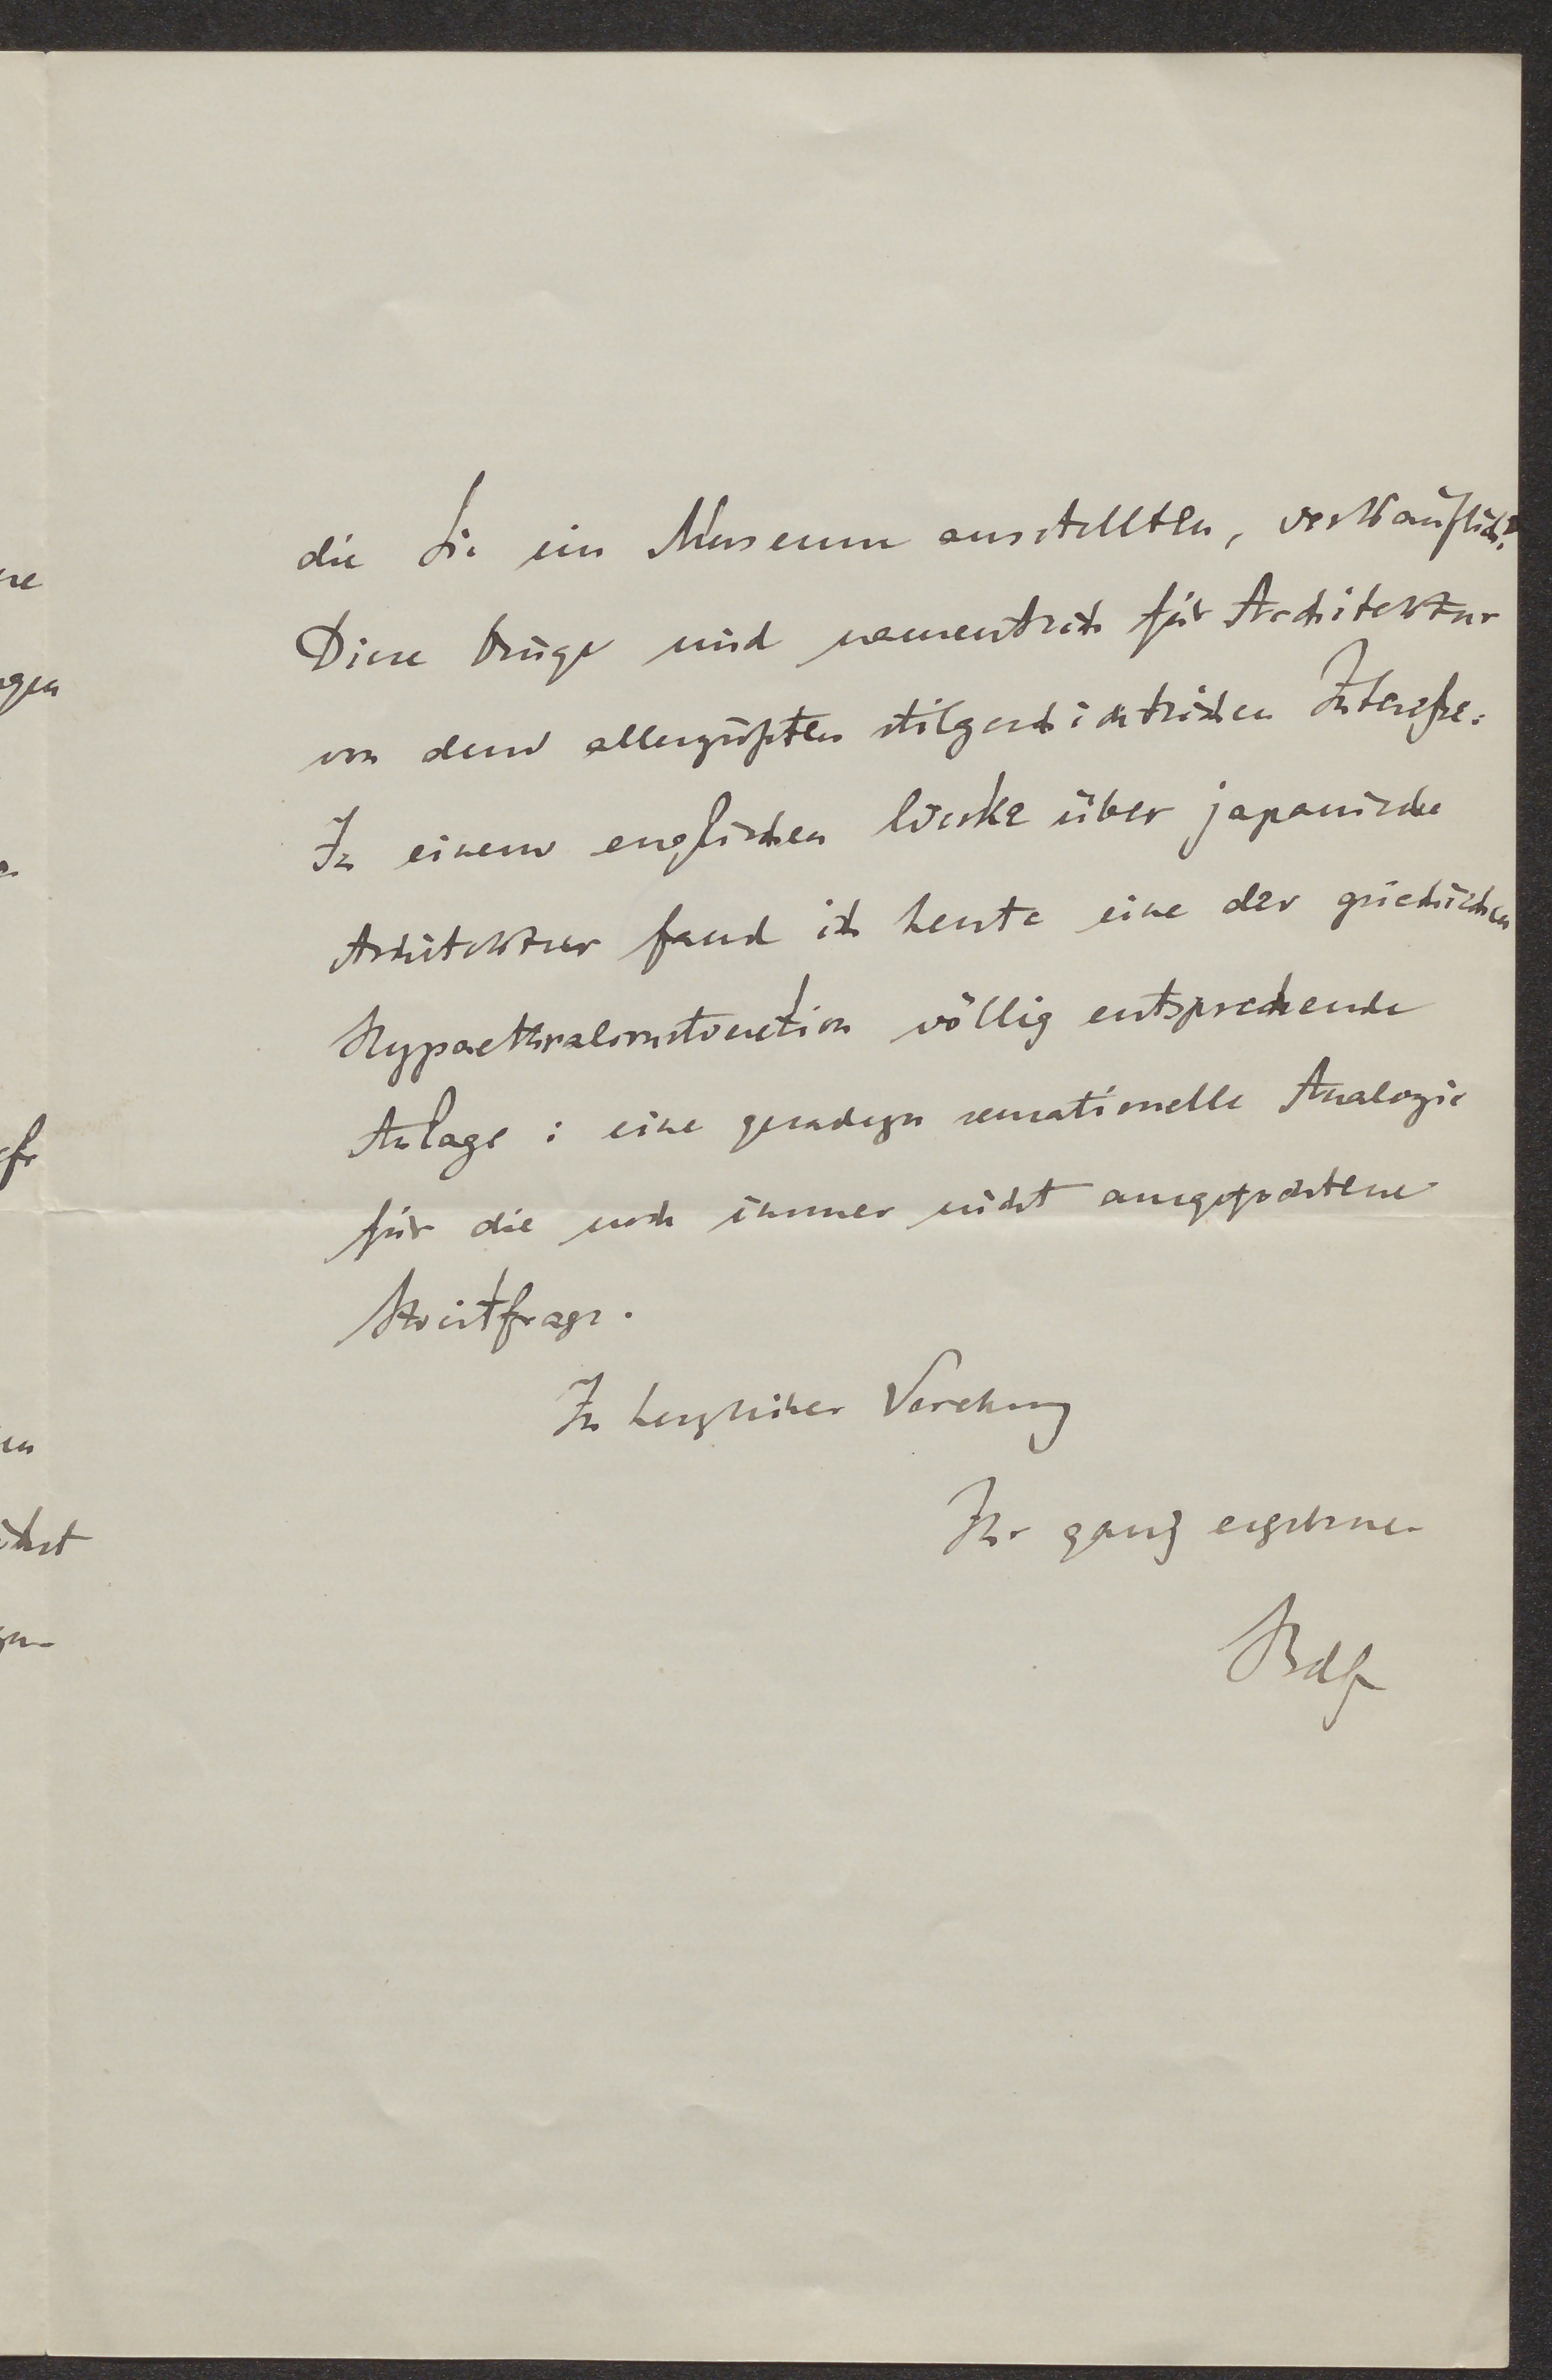 die Sie im Museum ausstellten, verkäuflich?
Diese Dinge sind namentlich für Architektur
von dem allergrößten stilgeschichtlichen Interesse.
In einem englischen Werke über japanische
Architektur fand ich heute eine der griechischen
Hypaethralconstruction völlig entsprechende
Anlage : eine geradezu sensationelle Analogie
für die noch immer nicht ausgefochtene
Streitfrage.
In herzlicher Verehrung
Ihr ganz ergebener